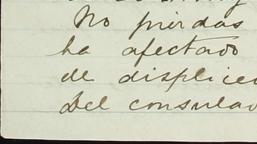 No pierdas
ha afectado
de displice
Del consulad